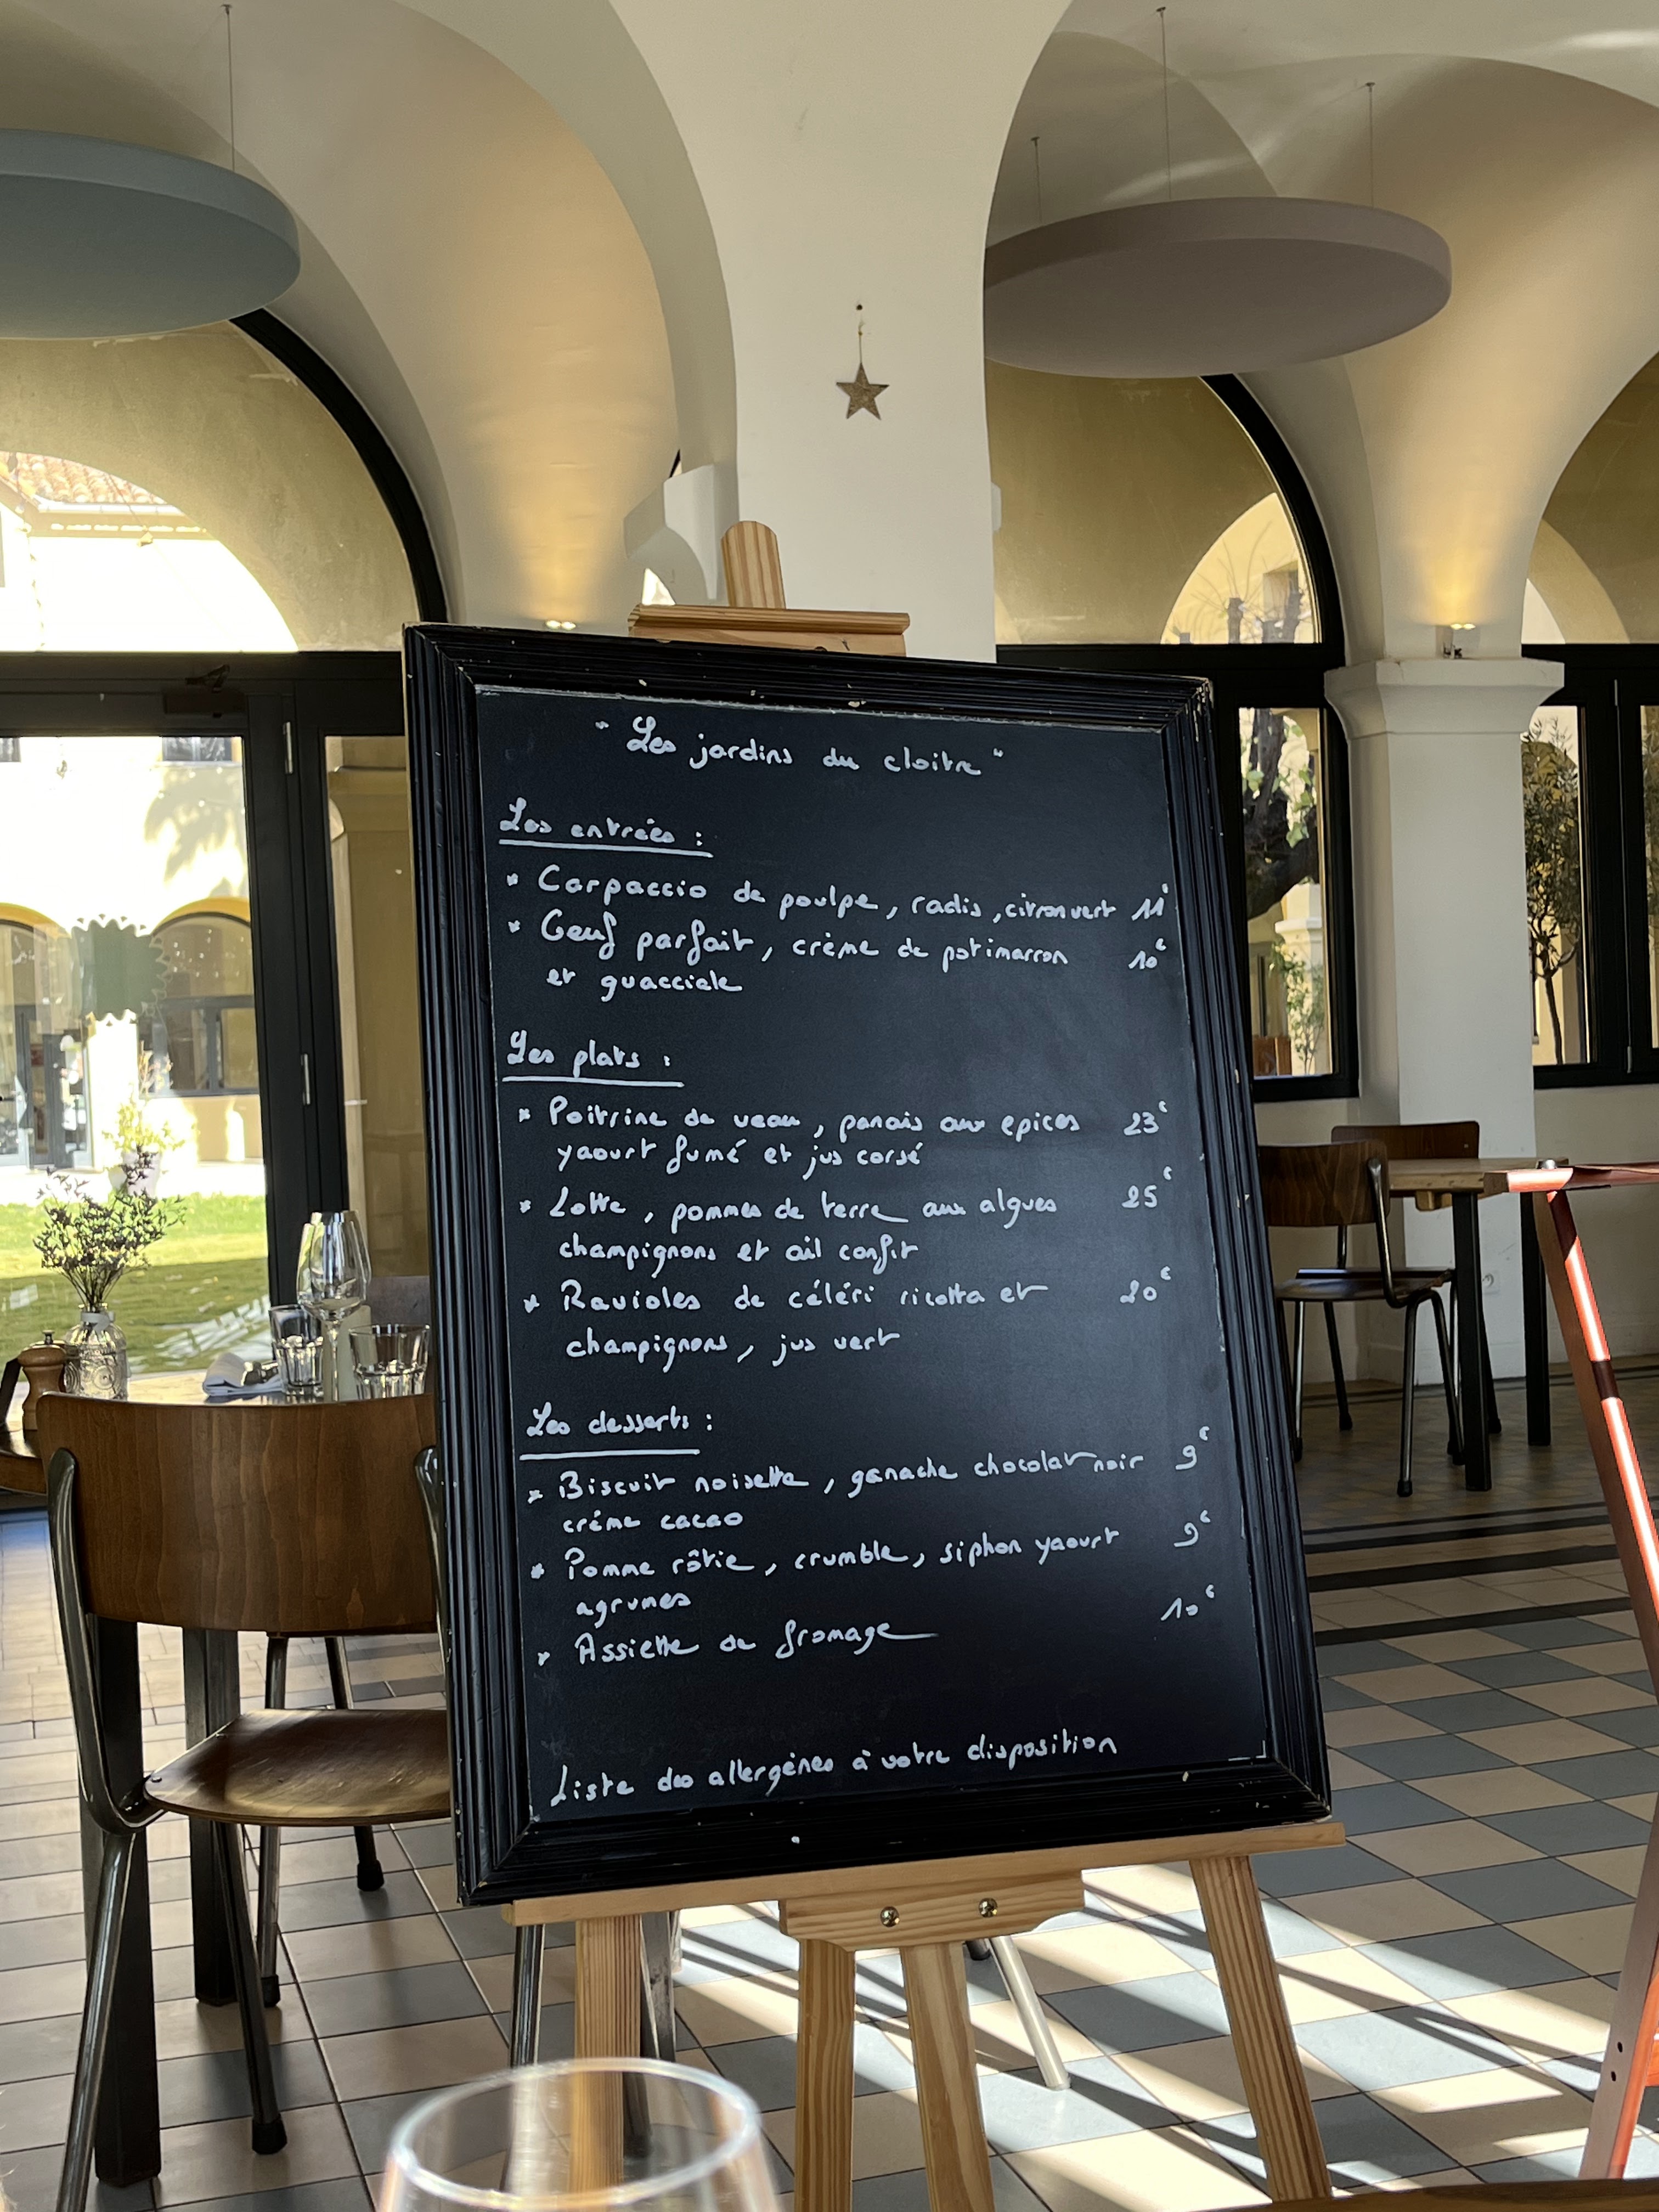 " Les jardins du cloitre "
Les entrées :
* Carpaccio de poulpe, radis, citron vert 11€
* Oeuf parfait, crème de potimarron 10€
et guacciale
Les plats :
* Poitrine de veau, panais aux epices 23€
yaourt fumé et jus corsé
* Lotte, pommes de terre aux algues 25€
champignons et ail confit
* Ravioles de céléri ricotta et 20€
champignons, jus vert
Les desserts :
* Biscuit noisette, ganache chocolat noir 9€
créme cacao
* Pomme rôtie, crumble, siphon yaourt 9€
agrumes
* Assiette de fromage 10€
Liste des allergènes à votre disposition